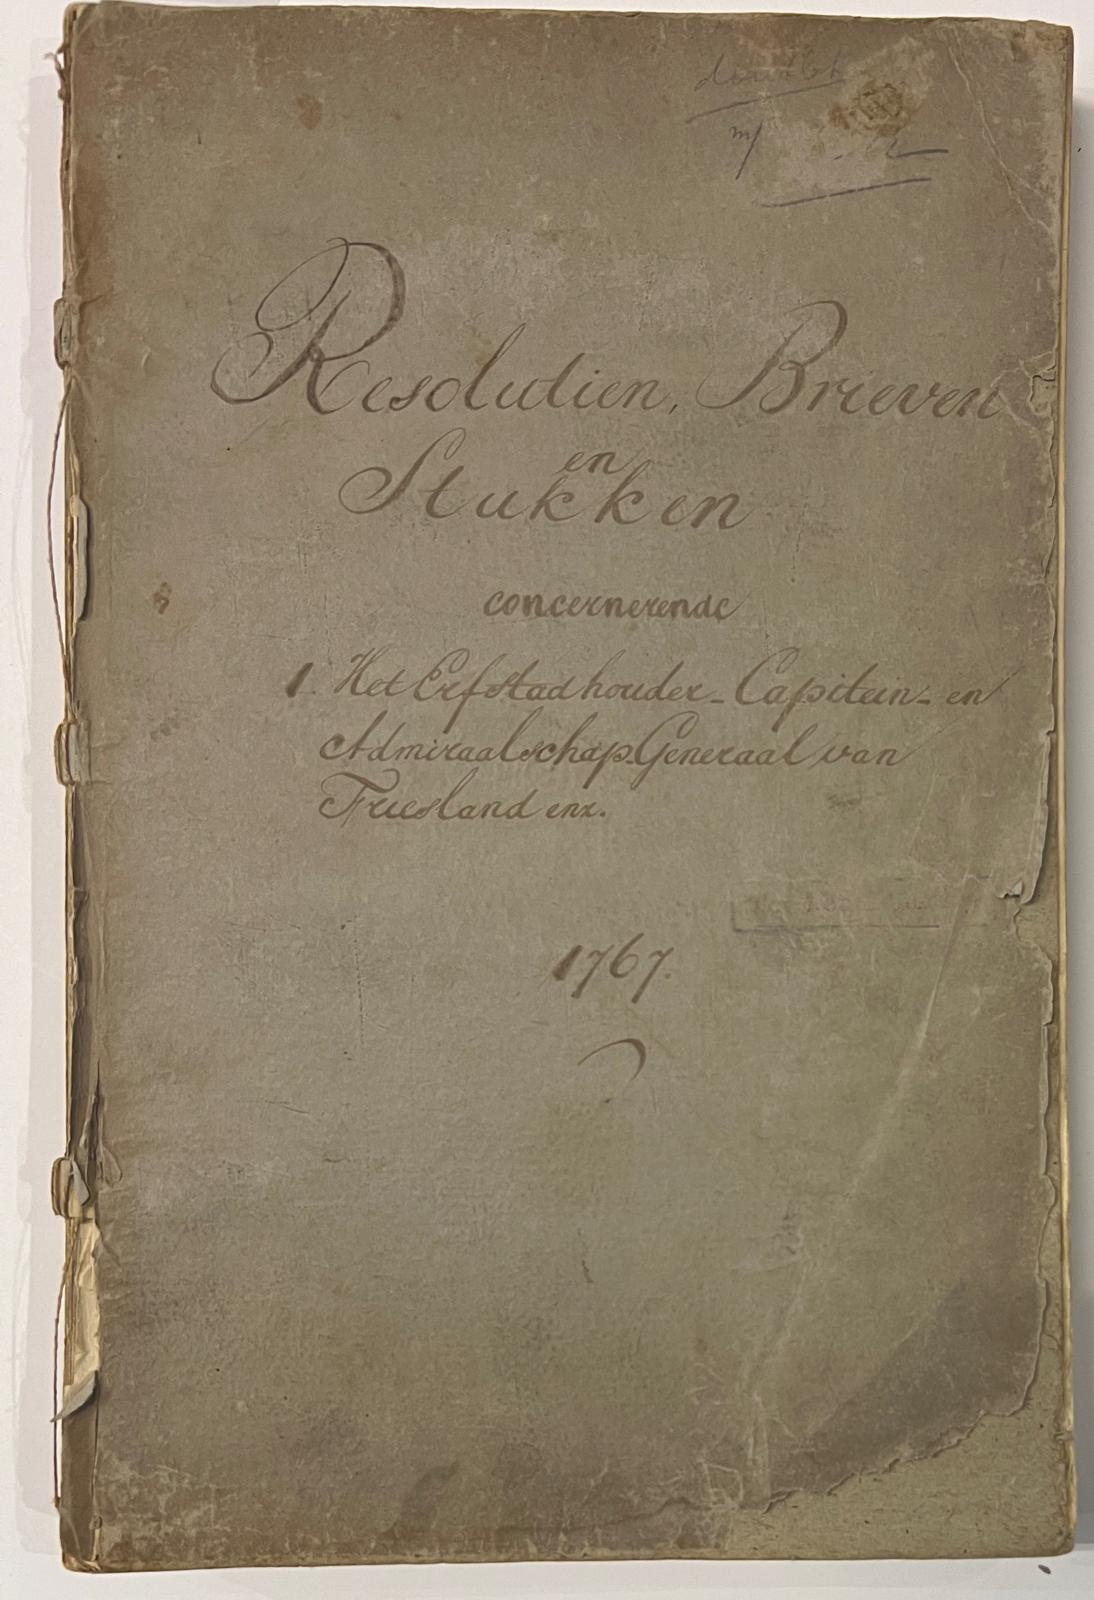 Resolutien, Brieven
en
Stukken
concernerende
1. Het Erfstadhouder- Capitein- en
Admiraalschap-Generaal van
Friesland enz.
1767.